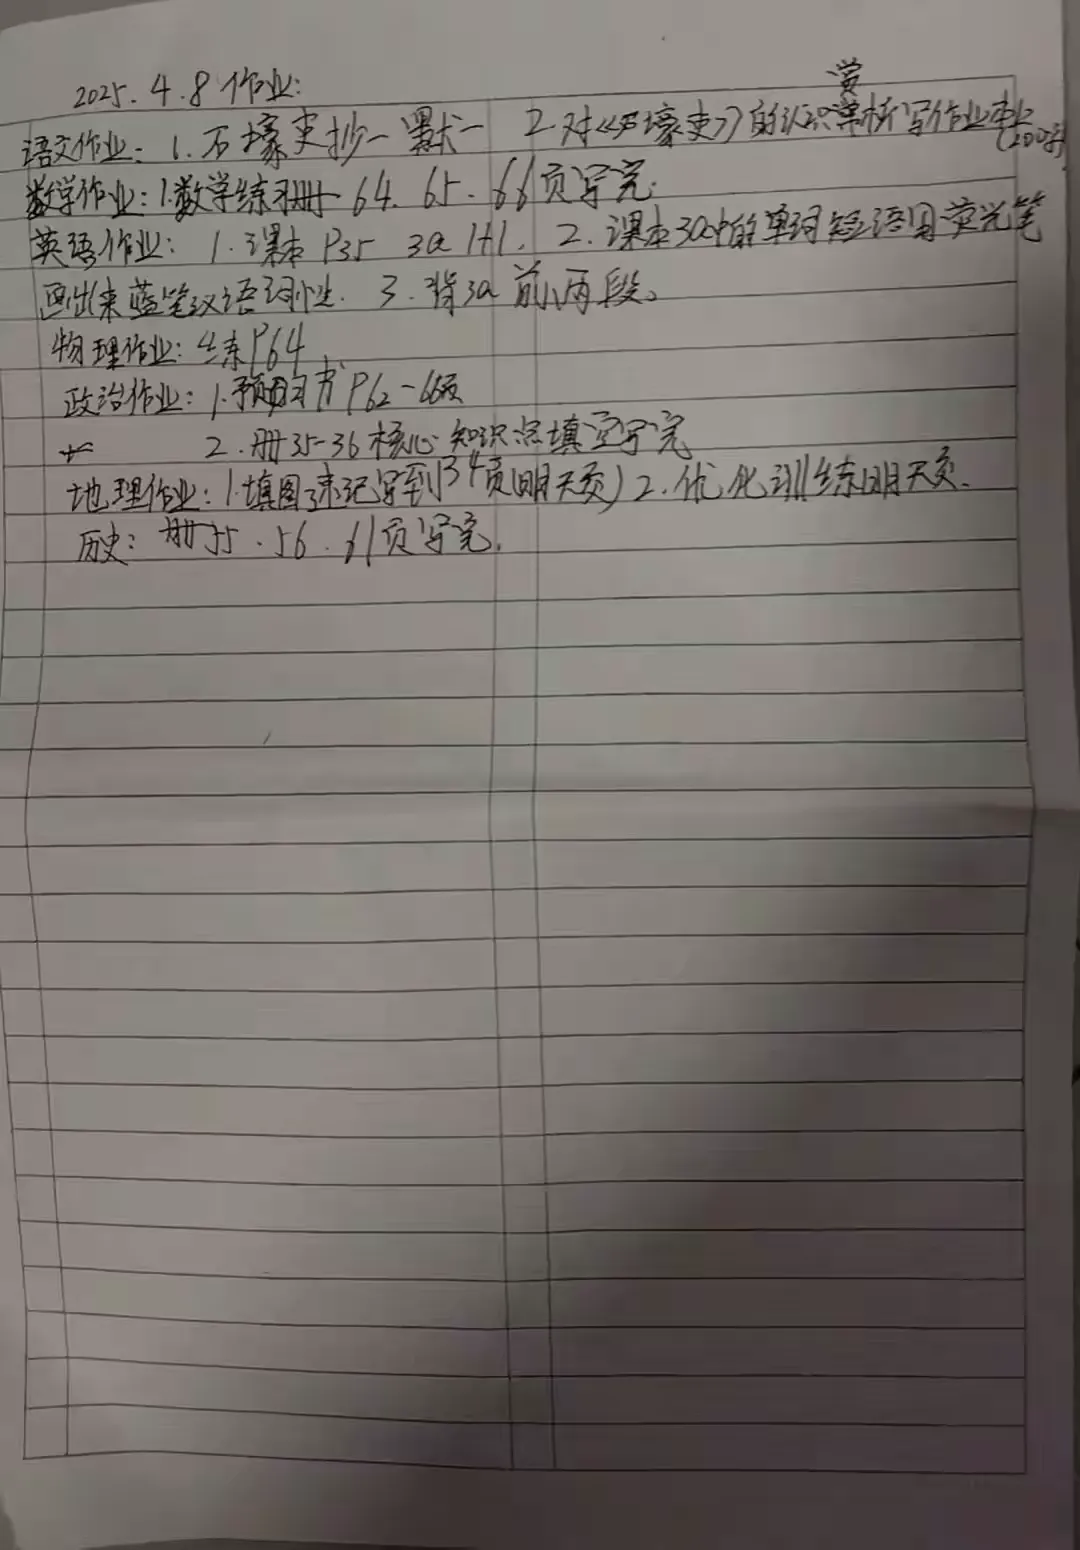 2025.4.8作业:
语文作业：1.石壕吏抄一默一 2.对《石壕吏》的认识赏析写作业本上(200字)
数学作业：1.数学练习册 64. 65. 66页写完.
英语作业：1.课本P35 3a 1+1. 2.课本3a中的单词短语用荧光笔
画出来蓝笔汉语词性. 3.背3a前两段。
物理作业：练P64
政治作业：1.预习书P62-66页
2.册35-36核心知识点填空写完
地理作业：1.填图速记写到134页(明天交) 2.优化训练明天交.
历史：册55.56.61页写完.